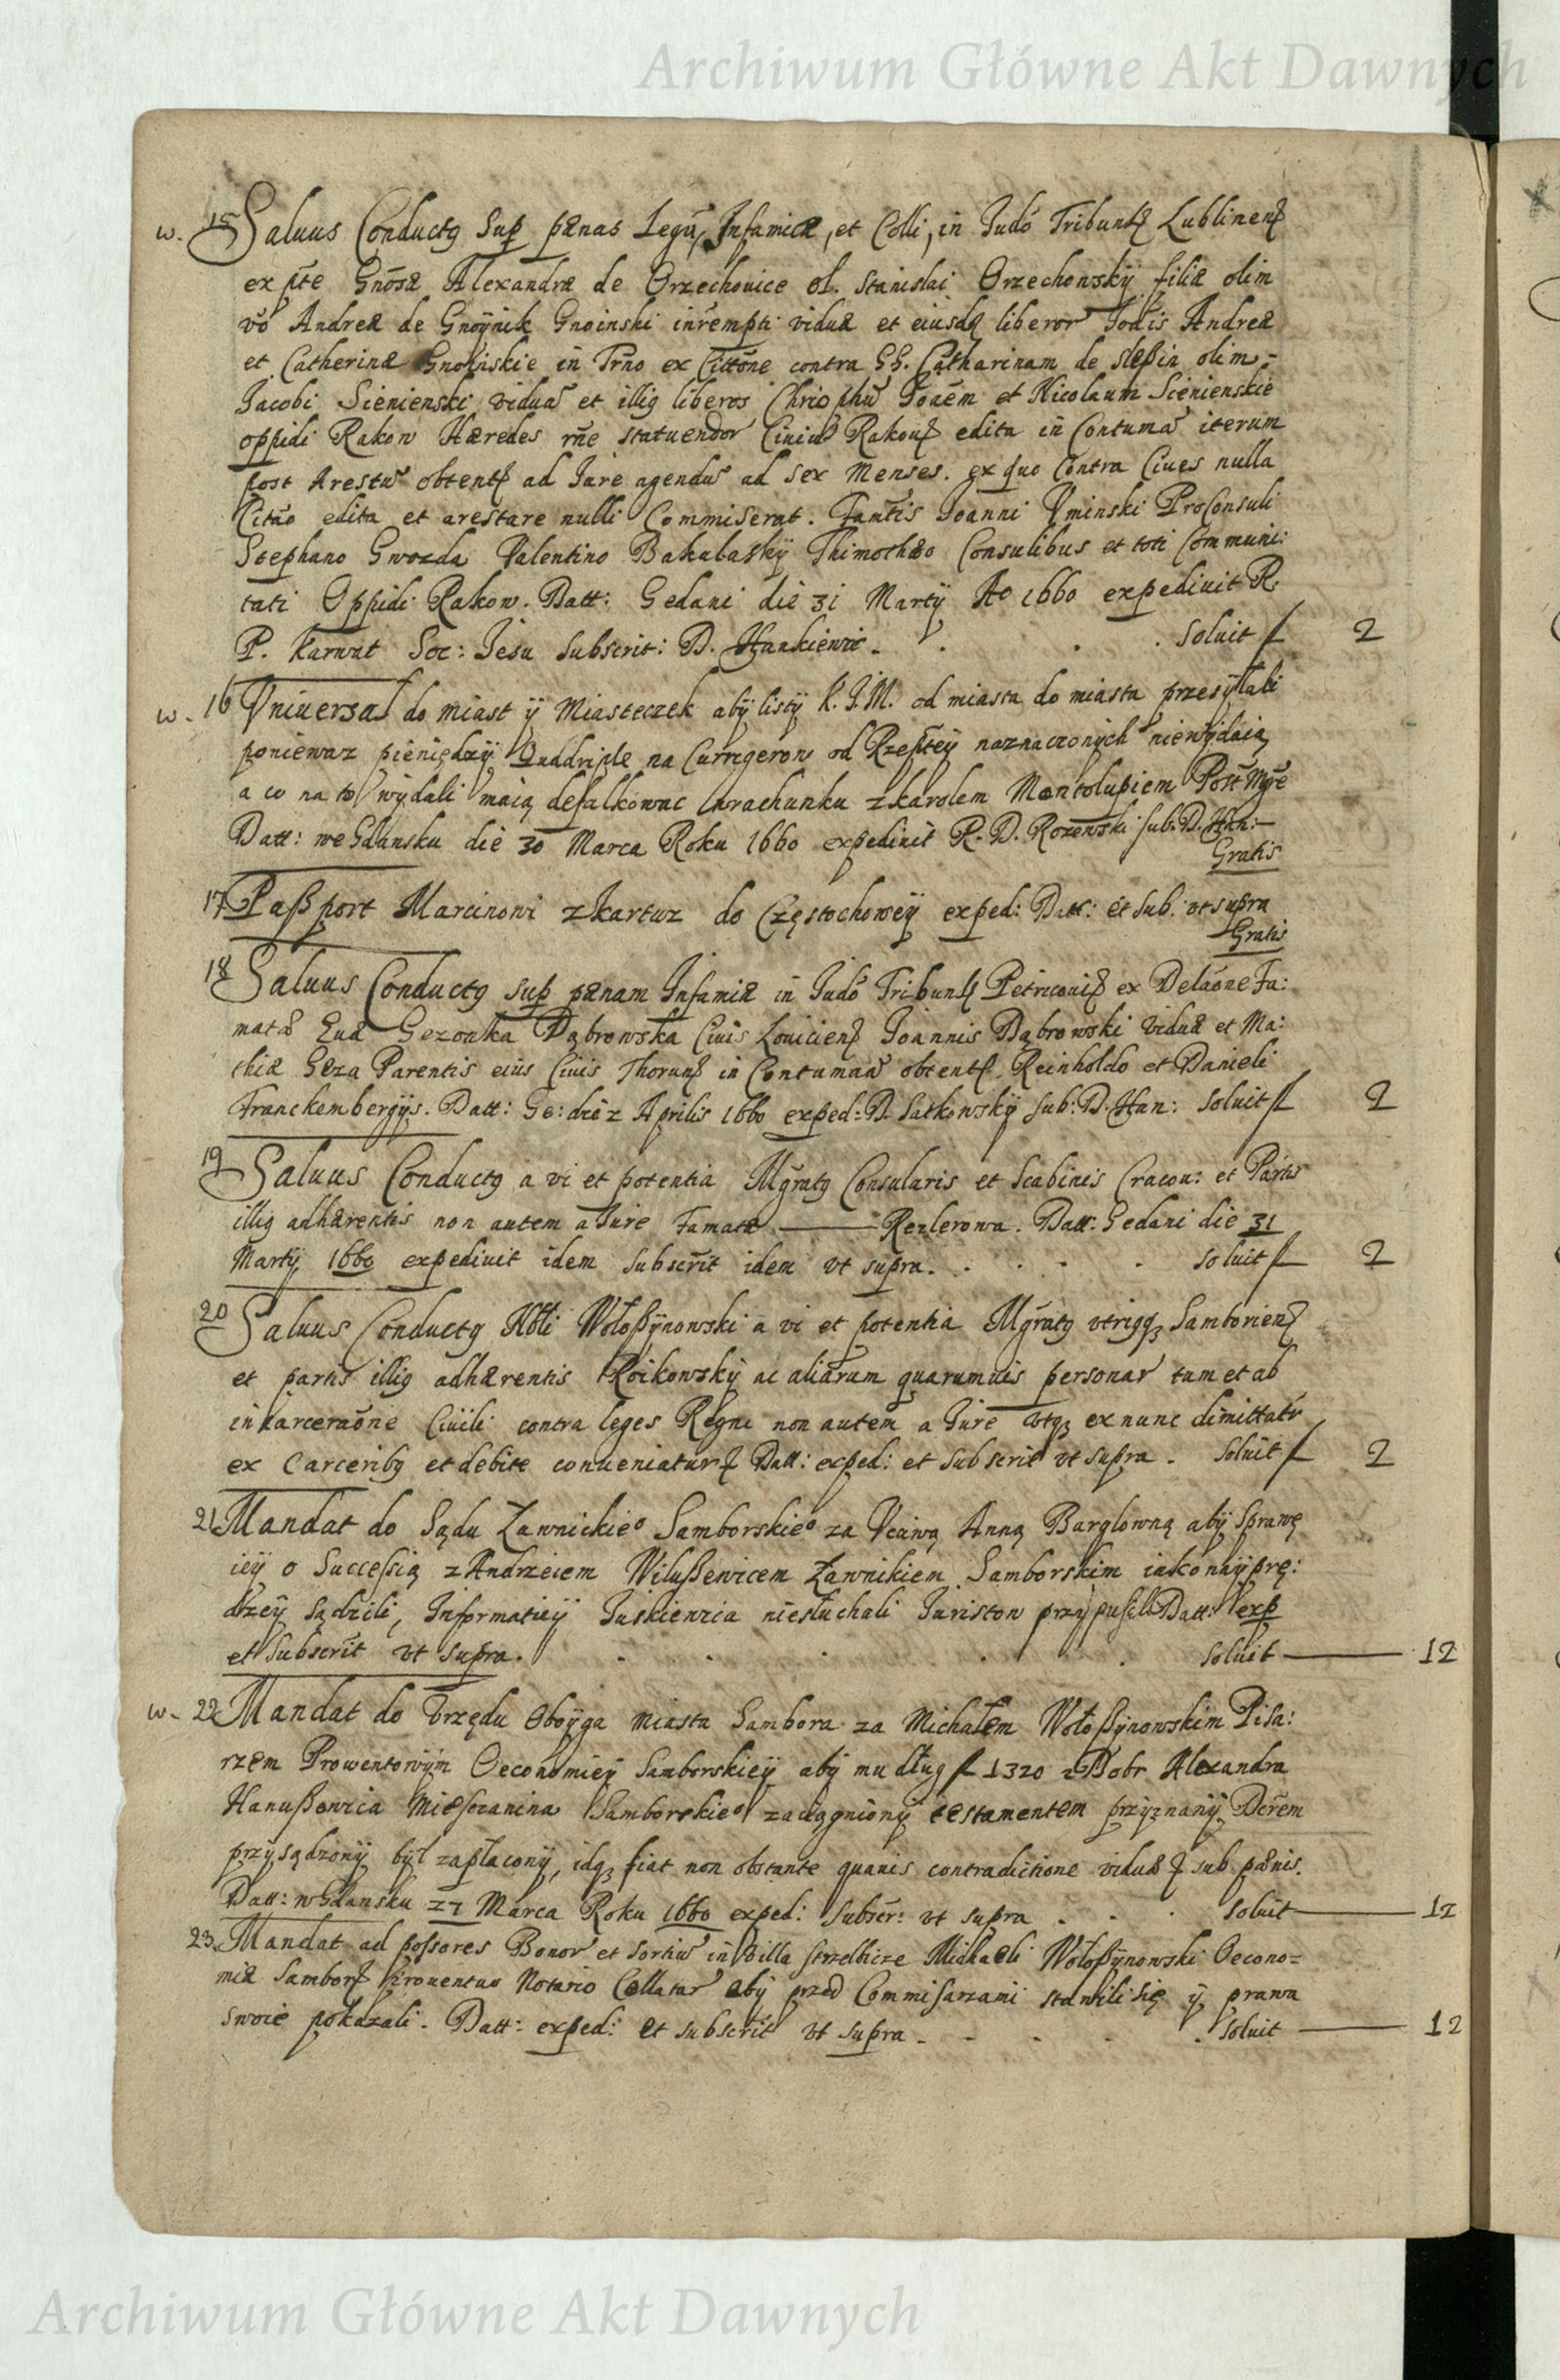 Archiwum Główne Akt Dawnych
w. 15 Saluus Conductq Sup pænas Legū, Infamiæ, et Colli, in Judō Tribunlʒ Lublinenʒ
ex pte Gnosæ Alexandræ de Orzechouice ol. Stanislai Orzechowskÿ filiæ olim
vō Andreæ de Gnoÿnik Gnoinski inrempti viduæ et eiusdę liberor Andreæ
et Catherinæ Gnoinskie in Trno ex Cittōne contra GG. Catharinam de Slepin olim
Jacobi Sienienski viduā et illiq liberos Chriophū Joāem et Nicolaum Sienienskie
oppidi Rakow Hæredes rñe statuendor Ciuiū Rakouʒ edita in Contumā iterum
post Arestū obtentʒ ad Jure agendū ad sex Menses. ex quo Contra Ciues nulla
Citāo edita et arestare nulli Commiserat. Famtis Joanni Vminski ProConsuli
Stephano Gwozda Valentino Bakalaskÿ Thimothæo Consulibus et toti Communi:
tati Oppidi Rakow. Datt: Gedani die 31 Martÿ Ao 1660 expediuit R.
P. Karwat Soc: Jesu Subscrit: D. Hankiewic. Soluit f 2
w. 16 Vniuersal do miast ÿ Miasteczek abÿ listÿ K. J. M. od miasta do miasta przesÿłali
poniewaz pieniędzÿ Quddriple na Curręgerow od Rzeptēÿ naznaczonÿch niewÿdaią,
a co na to wÿdali maią defalkowac wrachunku z karolem Montolupiem Post Mgrē
Datt: we Gdansku die 30 Marca Roku 1660 expediuit R. D. Rozewski sub. D. Han:
Gratis
17 Paßport Marcinowi z kartuz do Częstochoweÿ exped: Datt: et Sub: vt supra
Gratis
18 Saluus Conductq Sup pænam Infamiæ in Judō Tribunlʒ Petricouiʒ ex Delaōne Fa:
matæ Euæ Gezonka Dąbrowska Ciuis Louicienʒ Joannis Dąbrowski viduæ et Ma:
thiæ Geza Parentis eius Ciuis Thorunʒ in Contumaā obtentʒ Reinholdo et Danieli
Franckembergÿs. Datt: Ge: die 2 Aprilis 1660 exped: D. Satkowskÿ Sub: D. Han: Soluit f 2
19 Saluus Conductq a vi et potentia Mgratq Consularis et Scabinis Cracou: et Partis
illiq adhærentis non autem a Jure Famatæ ——— Rezlerowa. Datt: Gedani die 31
Martÿ 1660 expediuit idem Subscrit idem vt supra. Soluit f 2
20 Saluus Conductq Wołoßÿnowski a vi et potentia Mgratq vtriqqʒ Samborienʒ
et partis illiq adhærentis Roikowskÿ ac aliarum quarumuis personar tum et ab
inkarceraōne Ciuili contra leges Regni non autem a Jure vtqʒ ex nunc dimittatr
ex Carceribq et debite conueniatur ʒ Datt: exped: et Subscrit vt supra. Soluit f 2
21 Mandat do Sądu Ławnickieo Samborskieo za Vcżiwą Anną Barglowną abÿ Sprawę
ieÿ o Successią z Andrzeiem Wilußewicem Ławnikiem Samborskim iako naÿprę:
dzeÿ Sądzili, Informatieÿ Juskiewicia niesłuchali Juristow przÿpuscili Datt: exp
et Subscrit vt supra. Soluit ——— 12
w. 22 Mandat do Vrzędu Oboÿga miasta Sambora za Michałem Wołoßÿnowskim Pisa:
rzem Prowentowÿm Oeconomieÿ Samborskieÿ abÿ mu dług f 1320 z Dobr Alexandra
Hanußewicia Miesczanina Samborskieo zaciągnionÿ testamentem przÿznanÿ Dcrem
przÿsądzonÿ bÿł zapłaconÿ, idqʒ fiat non obstante quauis contradictione viduæ ʒ sub pænis.
Datt: wGdansku 27 Marca Roku 1660 exped: Subscr: vt supra Soluit ——— 12
23 Mandat ad possores Bonor et Sortiū in Villa Strzelbice Michaeli Wołoßÿnowski Oecono=
miæ Samborʒ Prouentuū Notario Collatar abÿ przed Commissarzami stawili się ÿ prawa
swoie pokazali. Datt: exped: et subscrit vt supra. Soluit ——— 12
Archiwum Główne Akt Dawnych